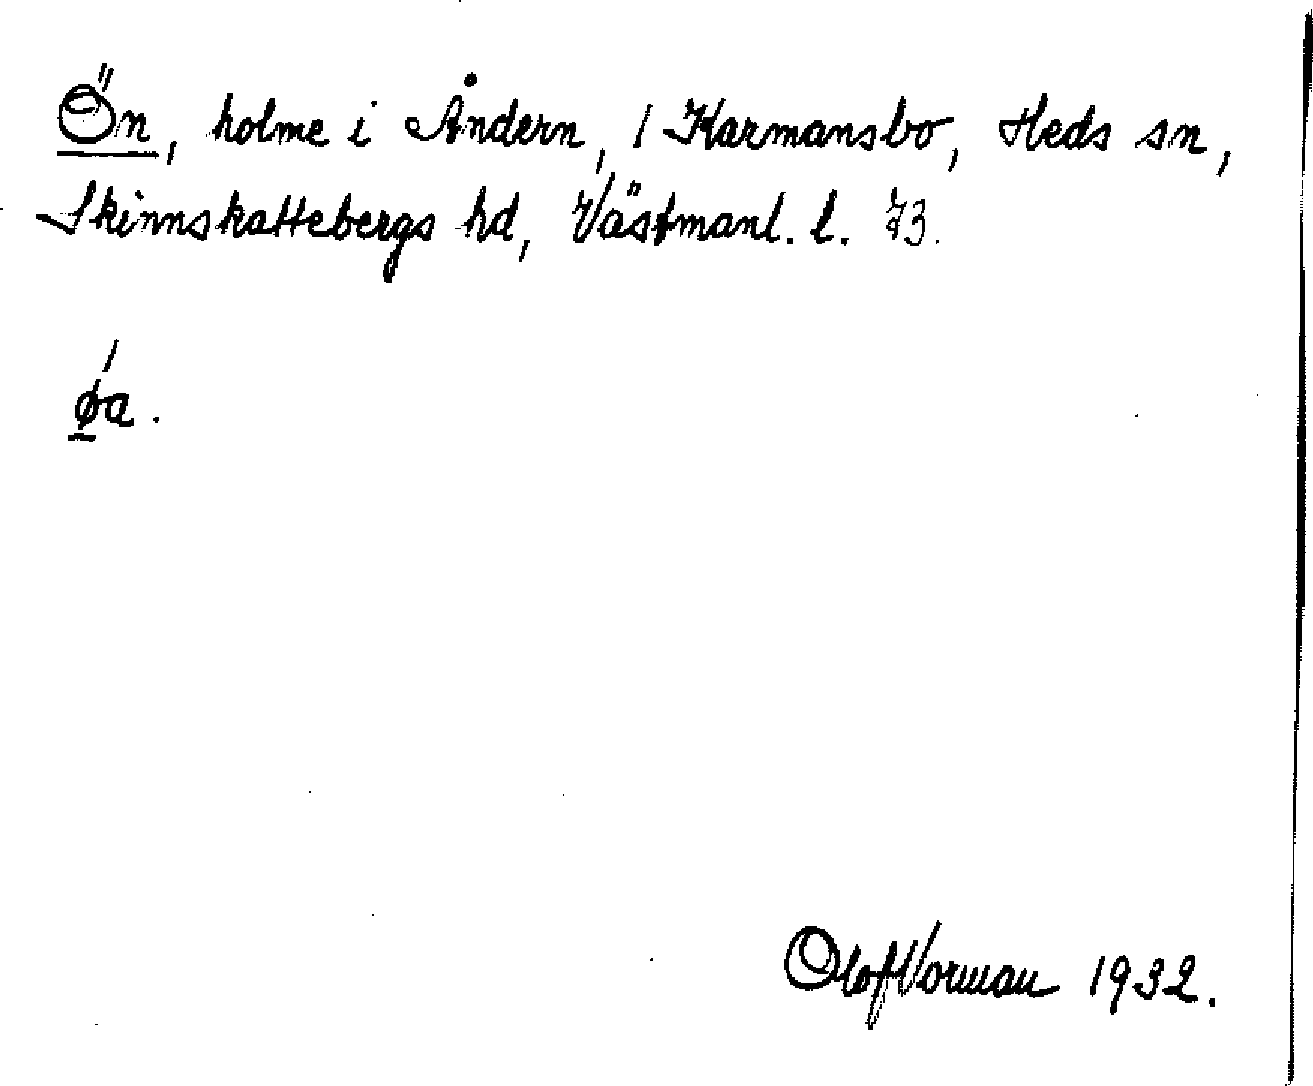 Ön, holme i Åndern, 1 Karmansbo, Heds sn,
Skinnskattebergs hd, Västmanl. l. 73.
ǿa.
Olof Norman 1932.